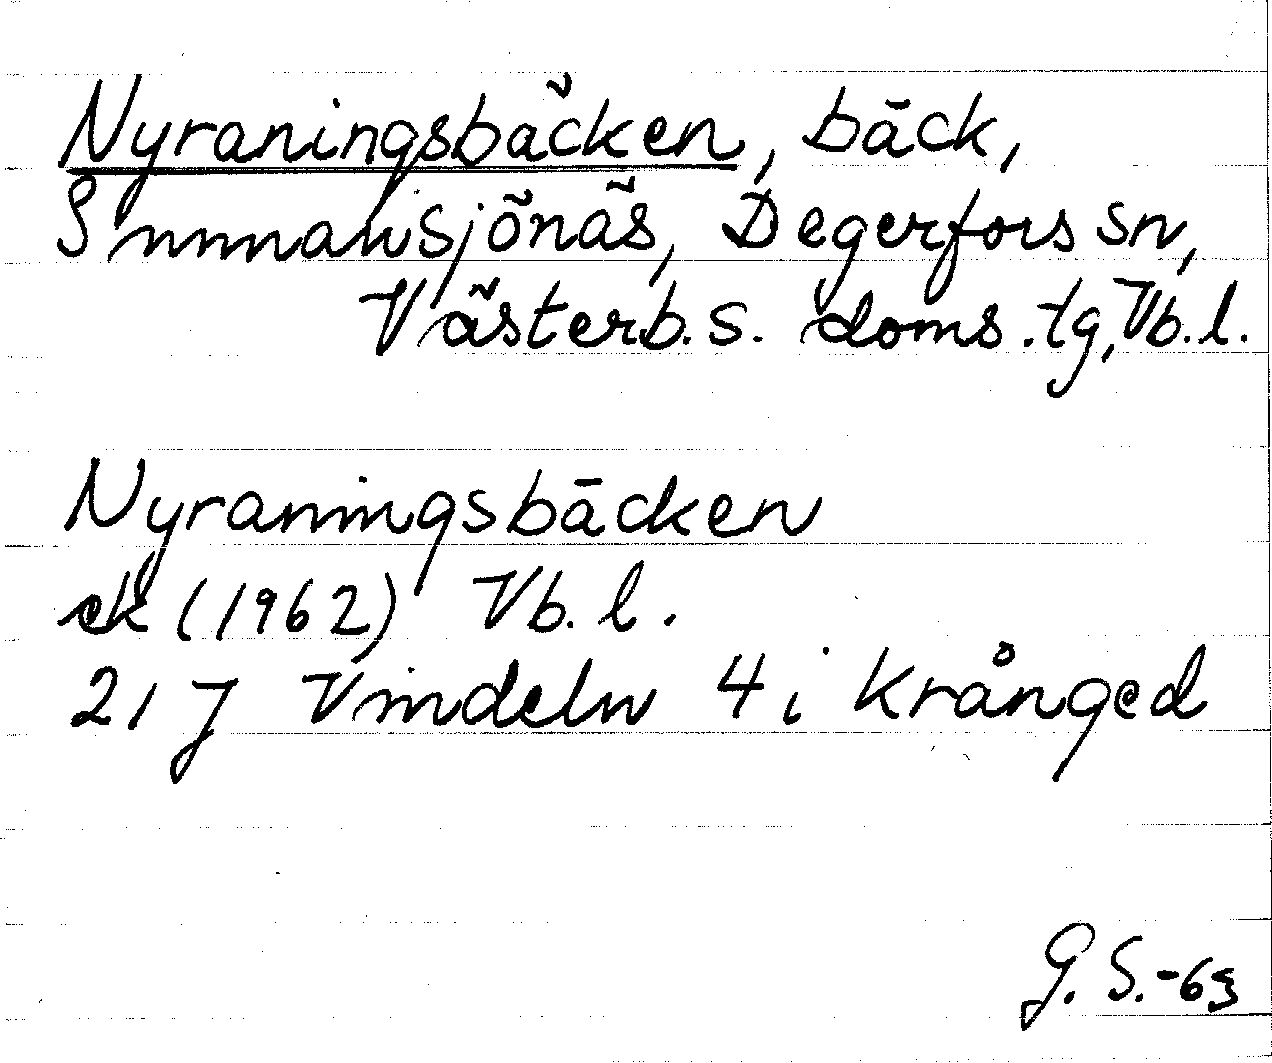 Nyraningsbäcken, bäck,
Degerfors sn,
Västerb. s. doms. tg, Vb. l.
Nyraningsbäcken
ek (1962) Vb. l.
21 J Vindeln 4 i Krånged
G. S. -63